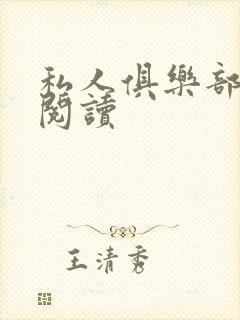 私人俱樂部
閱讀
王清秀